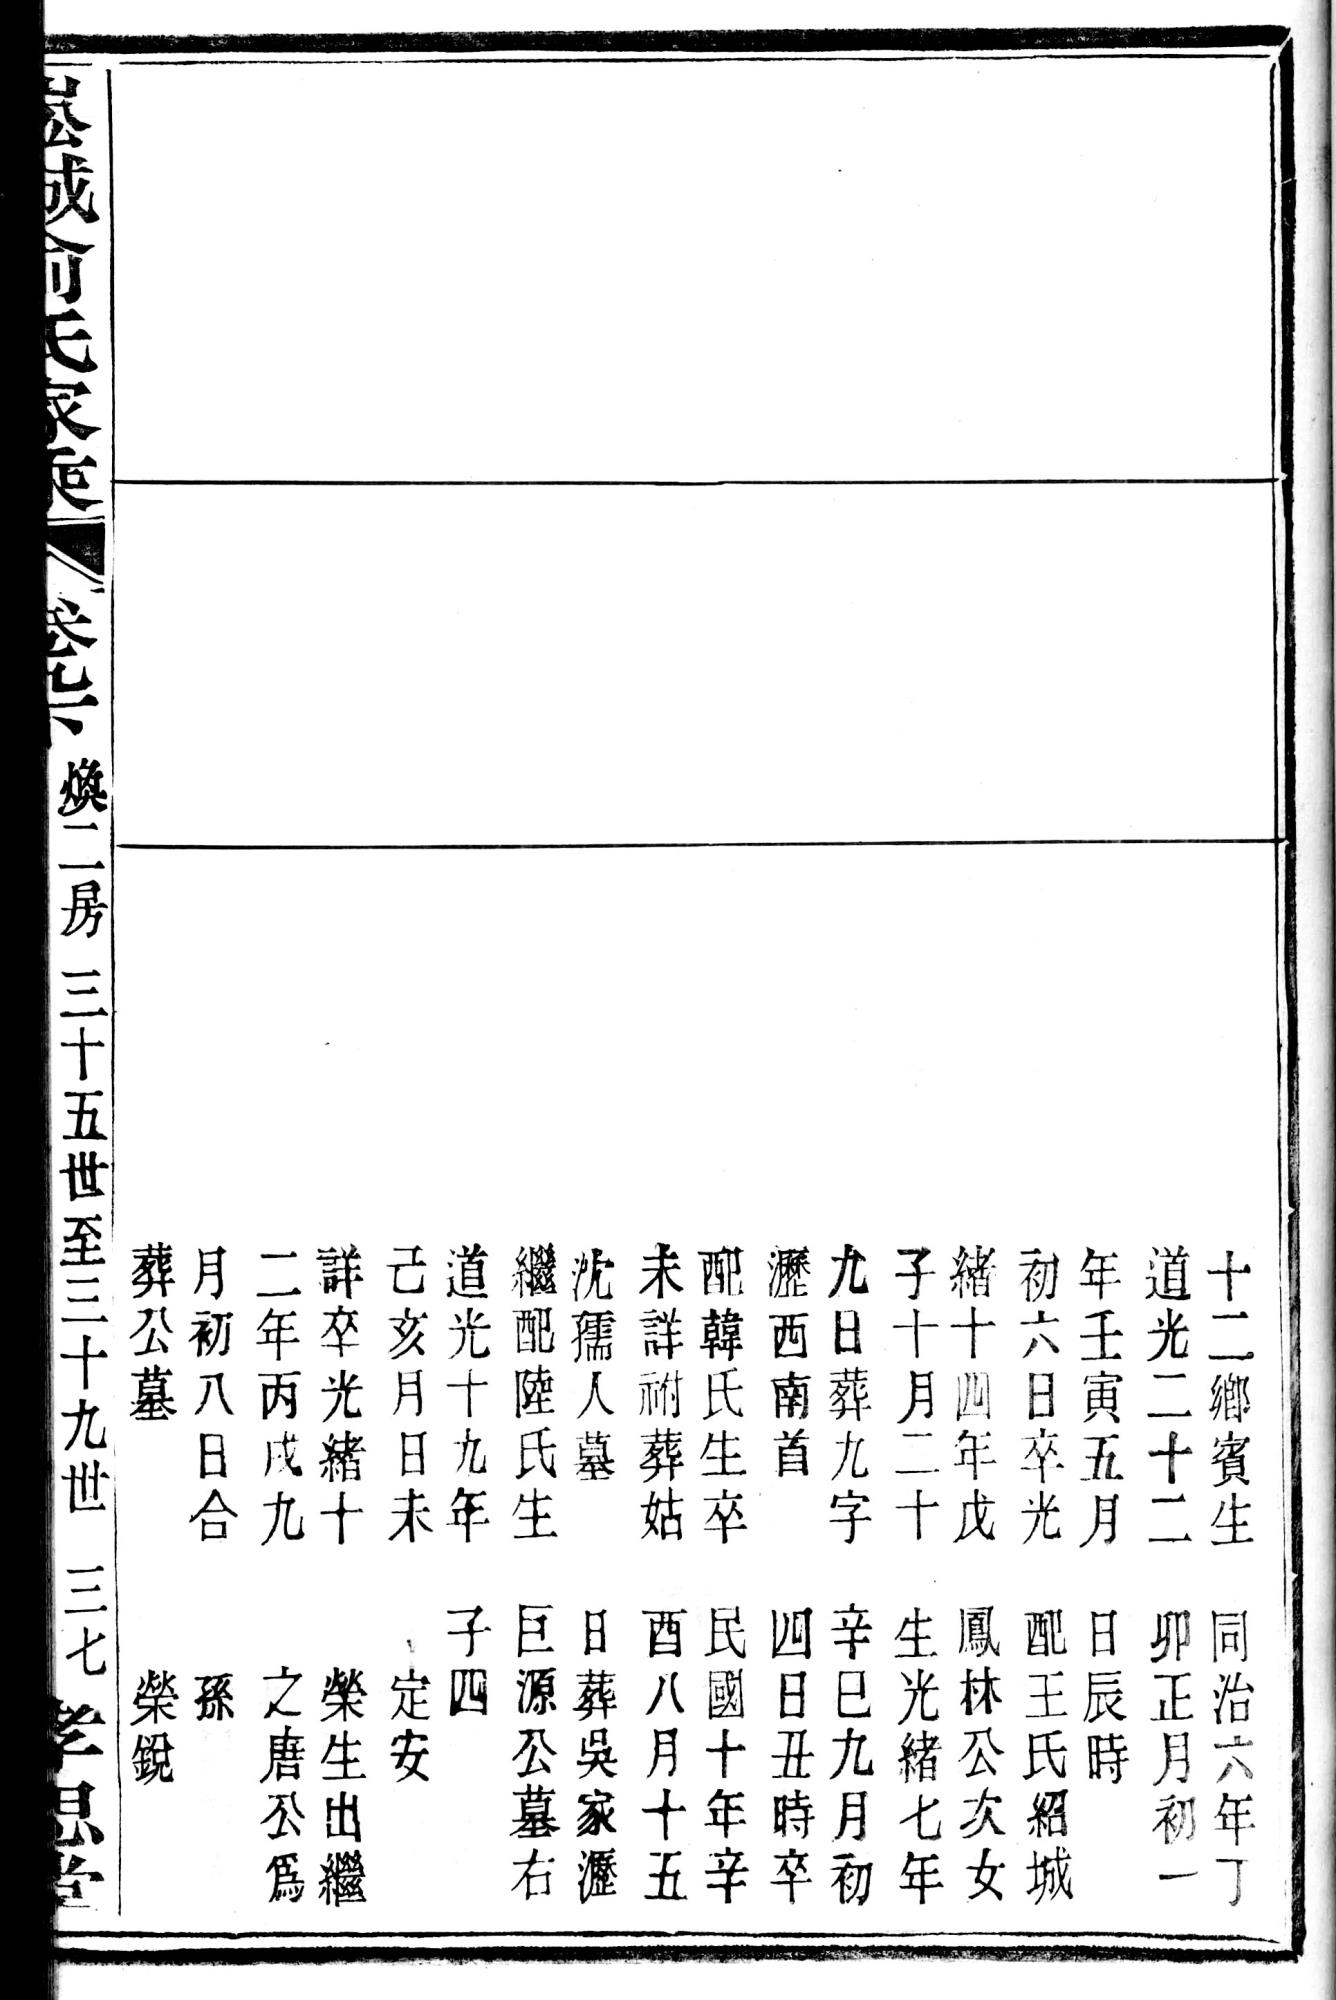 十二鄉賓生
道光二十二
年壬寅五月
初六日卒光
緒十四年戊
子十月二十
九日葬九字
瀝西南首
配韓氏生卒
未詳祔葬姑
沈孺人墓
繼配陸氏生
道光十九年
己亥月日未
詳卒光緒十
二年丙戌九
月初八日合
葬公墓
同治六年丁
卯正月初一
日辰時
配王氏紹城
鳳林公次女
生光緒七年
辛巳九月初
四日丑時卒
民國十年辛
酉八月十五
日葬吳家瀝
巨源公墓右
子四
定安
榮生出繼
之唐公爲
孫
榮銳
崧城俞氏家乘 卷九下 煥二房 三十五世至三十九世 三七 孝思堂